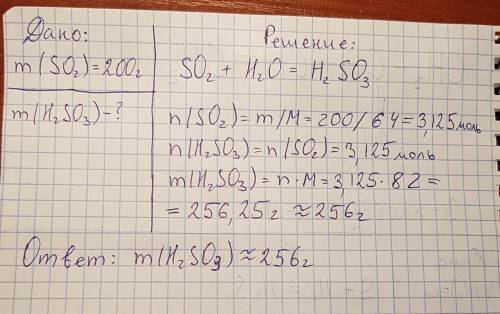 Дано:
m(SO₂)=200г
m(H₂SO₃)-?
Решение:
SO₂ + H₂O = H₂SO₃
n(SO₂)=m/M=200/64=3,125моль
n(H₂SO₃)=n(SO₂)=3,125моль
m(H₂SO₃)=n·M=3,125·82=
=256,25г ≈256г
Ответ: m(H₂SO₃)≈256г